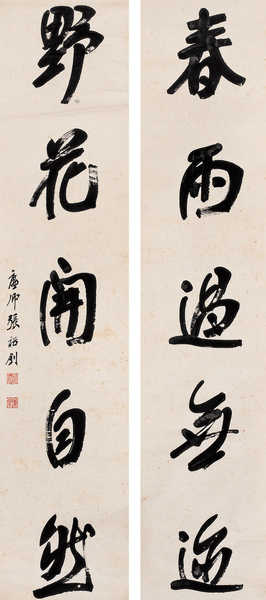 春雨過無迹
野花開自然
廣師張裕釗